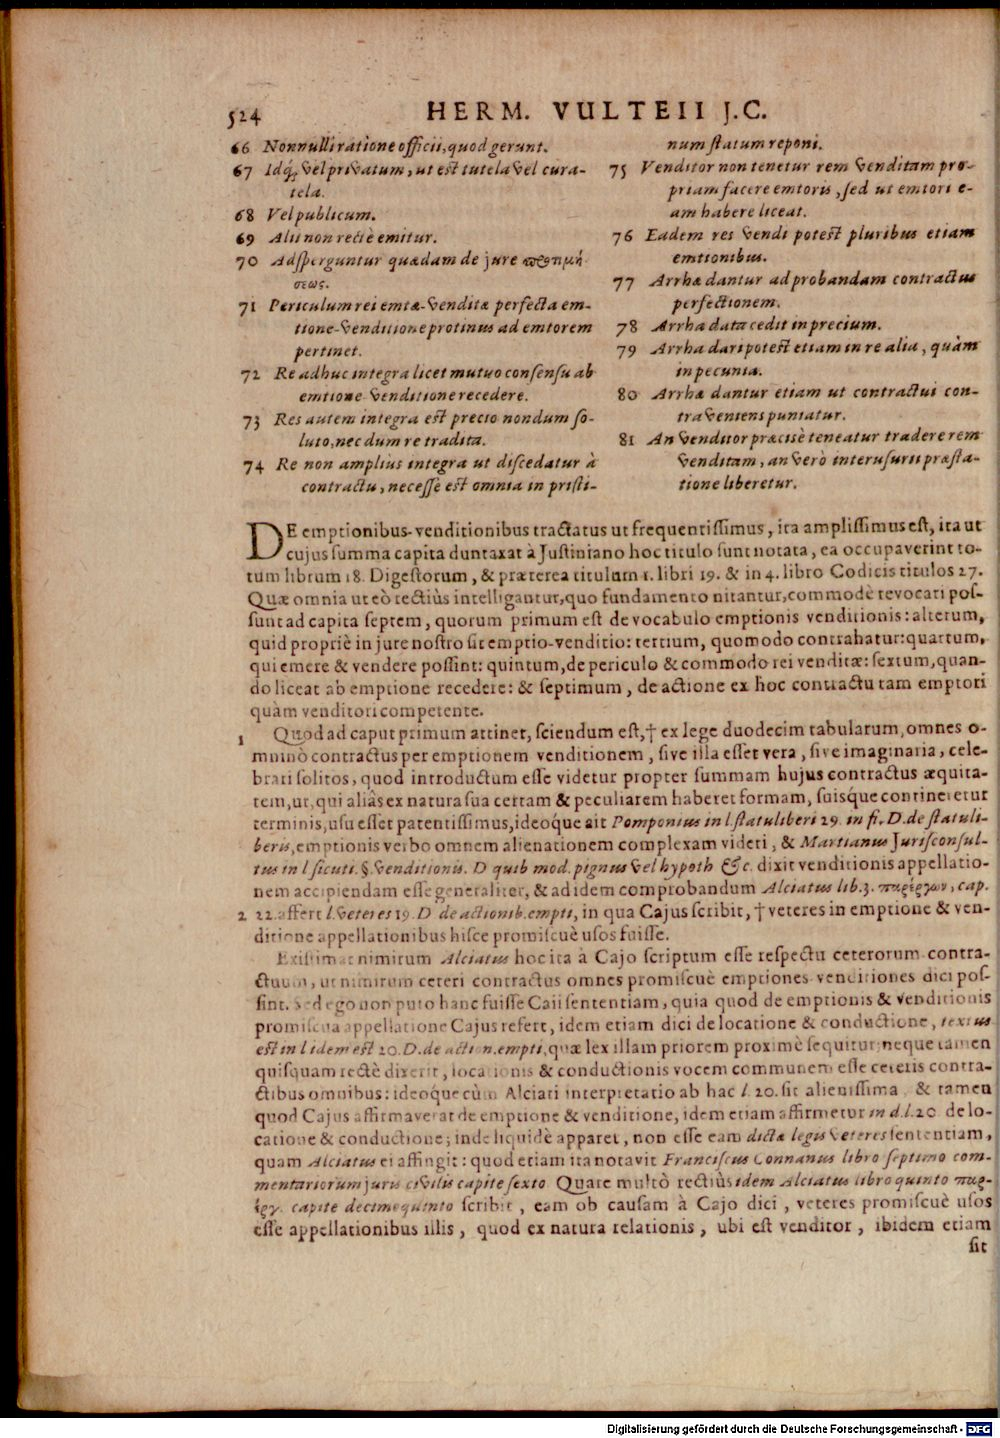 524 HERM. VULTEII J.C.
66 Nonnulli ratione officii, quod gerunt.
67 Idq́; vel privatum, ut est tutela vel cura-
tela.
68 Vel publicum.
69 Alii non rectè emitur.
70 Adsperguntur quædam de jure προτιμή-
σεως.
71 Periculum rei emtæ-venditæ perfecta em-
tione-venditione protinus ad emtorem
pertinet.
72 Re adhuc integra licet mutuo consensu ab
emtione venditione recedere.
73 Res autem integra est precio nondum so-
luto, nec dum re tradita.
74 Re non amplius integra ut discedatur à
contractu, necesse est omnia in pristi-
num statum reponi.
75 Venditor non tenetur rem venditam pro-
priam facere emtoris, sed ut emtori e-
am habere liceat.
76 Eadem res vendi potest pluribus etiam
emtionibus.
77 Arrhæ dantur ad probandam contractus
perfectionem.
78 Arrha data cedit in precium.
79 Arrha dari potest etiam in re alia, quàm
in pecunia.
80 Arrhæ dantur etiam ut contractui con-
traveniens puniatur.
81 An venditor præcisè teneatur tradere rem
venditam, an verò interusurii præsta-
tione liberetur.
DE emptionibus-venditionibus tractatus ut frequentissimus, ita amplissimus est, ita ut
cujus summa capita duntaxat à Justiniano hoc titulo sunt notata, ea occupaverint to-
tum librum 18. Digestorum, & præterea titulum 1. libri 19. & in 4. libro Codicis titulos 27.
Quæ omnia ut eò rectiùs intelligantur, quo fundamento nitantur, commodè revocari pos-
sunt ad capita septem, quorum primum est de vocabulo emptionis venditionis: alterum,
quid propriè in jure nostro sit emptio-venditio: tertium, quomodo contrahatur: quartum,
qui emere & vendere possint: quintum, de periculo & commodo rei venditæ: sextum, quan-
do liceat ab emptione recedere: & septimum, de actione ex hoc contractu tam emptori
quàm venditori competente.
1 Quod ad caput primum attinet, sciendum est, † ex lege duodecim tabularum, omnes o-
mninò contractus per emptionem venditionem, sive illa esset vera, sive imaginaria, cele-
brari solitos, quod introductum esse videtur propter summam hujus contractus æquita-
tem, ut, qui aliâs ex natura sua certam & peculiarem haberet formam, suisque contineretur
terminis, usu esset patentissimus, ideoque ait Pomponius in l. statuliberi 29. in fi. D. de statuli-
beris, emptionis verbo omnem alienationem complexam videri, & Martianus Jurisconsul-
tus in l sicuti. §. venditionis. D quib mod. pignus vel hypoth &c. dixit venditionis appellatio-
nem accipiendam esse generaliter, & ad idem comprobandum Alciatus lib. 3. παρέργων, cap.
2 22. affert l. veteres 19. D de actionib. empti, in qua Cajus scribit, † veteres in emptione & ven-
ditione appellationibus hisce promiscuè usos fuisse.
Existimat nimirum Alciatus hoc ita à Cajo scriptum esse respectu ceterorum contra-
ctuum, ut nimirum ceteri contractus omnes promiscuè emptiones venditiones dici pos-
sint. Sed ego non puto hanc fuisse Caii sententiam, quia quod de emptionis & venditionis
promiscua appellatione Cajus refert, idem etiam dici de locatione & conductione, textus
est in l idem est 20. D. de action. empti, quæ lex illam priorem proximè sequitur: neque tamen
quisquam rectè dixerit, locationis & conductionis vocem communem esse ceteris contra-
ctibus omnibus: ideoque cùm Alciati interpretatio ab hac l. 20. sit alienissima, & tamen
quod Cajus affirmaverat de emptione & venditione, idem etiam affirmetur in d. l. 20 de lo-
catione & conductione; inde liquidè apparet, non esse eam dictæ legis veteres sententiam,
quam Alciatus ei affingit: quod etiam ita notavit Franciscus Connanus libro septimo com-
mentariorum juris civilis capite sexto Quare multò rectiùs idem Alciatus libro quinto παρ-
έργ. capite decimoquinto scribit, eam ob causam à Cajo dici, veteres promiscuè usos
esse appellationibus illis, quod ex natura relationis, ubi est venditor, ibidem etiam
sit
Digitalisierung gefördert durch die Deutsche Forschungsgemeinschaft - DFG